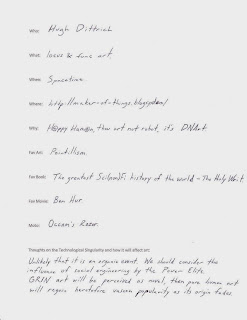 Who: Hugh Dittrich
What: locus & func art.
When: Spacetime.
Where: http://maker-of-things.blogspot.com/
Why: H@ppy Hum@n, thou art not robot, it's DNArt
Fav Art: Pointillism.
Fav Book: The greatest history of the world - The Holy Writ.
Fav Movie: Ben Hur.
Motto: Occam's Razor.
Thoughts on the Technological Singularity and how it will affect art:
Unlikely that it is an organic event. We should consider the
influence of social engineering by the Power Elite.
GRIN art will be perceived as novel, then pure human art
will regain heretofore unseen popularity as its origin fades.